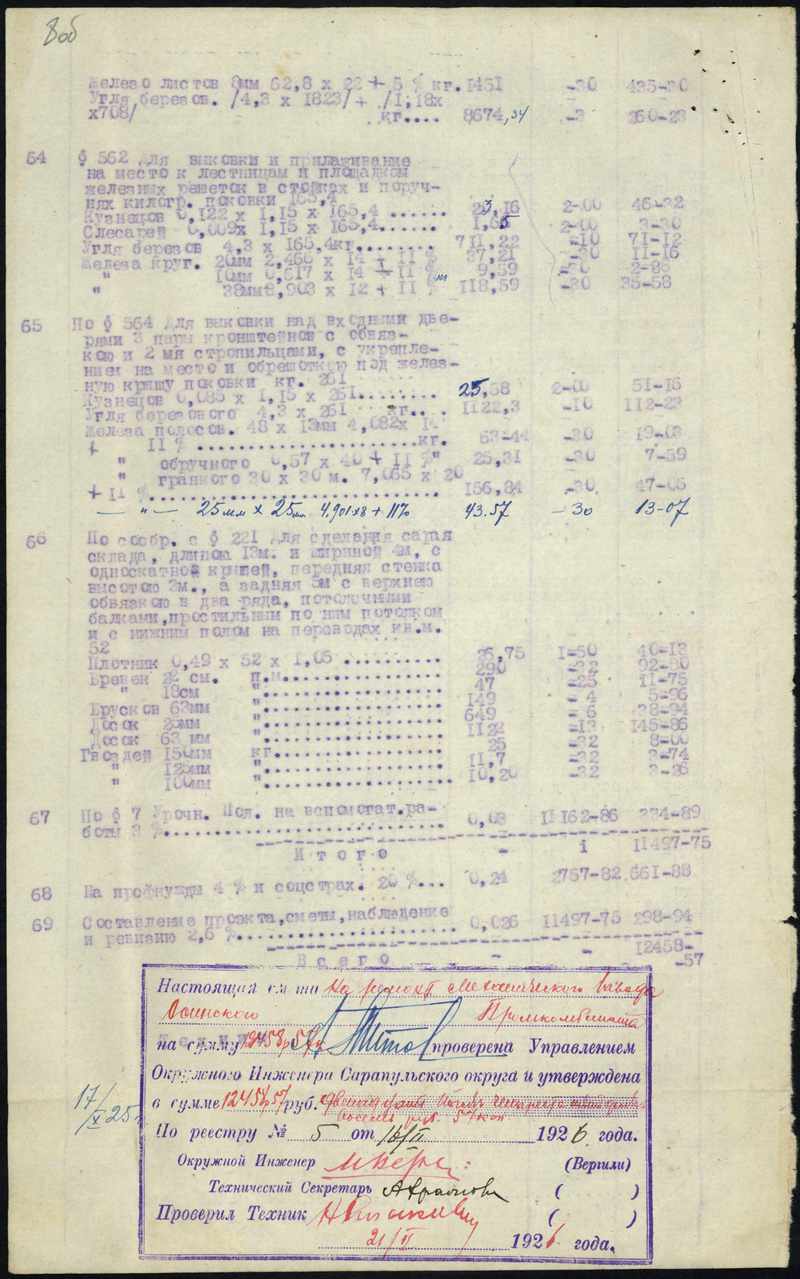 8об
Железо листов 8мм 62,8 х 22 + 5 % кг. 1451 -30 435-30
Угля березов. /4,3 х 1823/ + /1,18х
х708/ кг.... 8674,34 -3 260-23
64 § 562 Для выковки и прилаживание
на место к лестницам и площадком
железных решеток в стойках и поруч-
нях килогр. поковки 165,4
Кузнецов 0,122 х 1,15 х 165,4 ...... 23,16 2-00 46-32
Слесарей 0,009х 1,15 х 165,4....... 1,65 2-00 3-30
Угля березов 4,3 х 165,4кг........ 711,22 -10 71-12
Железа круг. 20мм 2,466 х 14 + 11 % 37,21 -30 11-16
" 10мм 0,617 х 14 + 11 % 9,59 -30
" 38мм 8,903 х 12 + 11 % 118,59 -30 35-58
65 По § 564 Для выковки над входными две-
рями 3 пары кронштейнов с обвяз-
кою и 2 мя стропильцами, с укрепле-
нием на место и обрешоткою под желез-
ную крышу поковки кг. 261
Кузнецов 0,085 х 1,15 х 261........ 25,58 2-00 51-16
Угля березового 4,3 х 261 кг... 1122,3 -10 112-23
Железа полосов. 48 х 13мм 4,082х 14
+ 11 % .......................кг. 63-44 -30 19-03
" обручного 0,57 х 40 + 11 %" 25,31 -30 7-59
" гранного 30 х 30 м. 7,065 х 20
+ 11 %............................ 156,84 -30 47-05
— " — 25мм х 25мм 4.901х8 + 11% 43.57 -30 13-07
66 По сообр. с § 221 Для сделания сарая
склада, длиною 13м. и шириной 4м, с
односкатной крышей, передняя стенка
высотою 2м., а задняя 3м с верхнею
обвязкою в два ряда, потолочными
балками, простильным по ним потолком
и с нижним полом на переводах кв.м.
52
Плотник 0,49 х 52 х 1,05 ........... 26,75 1-50 40-13
Бревен 22 см. п.м................ 290 -32 92-80
" 18см "................ 47 -25 11-75
Брусков 63мм "................ 149 - 4 5-96
Досок 25мм "................ 649 - 6 38-94
Досок 63 мм "................ 1122 -13 145-86
Гвоздей 150мм кг................ 25 -32 8-00
" 125мм "................ 11,7 -32 3-74
" 100мм "................ 10,20 -32 3-26
67 По § 7 Урочн. Пол. на вспомогат.ра-
боты 3 %........................... 0,03 11162-86 334-89
Итого - 1 11497-75
68 На профнужды 4 % и соцстрах. 20 %... 0,24 2757-82 661-88
69 Составление проэкта, сметы, наблюдение
и ревизию 2,6 %..................... 0,026 11497-75 298-94
Всего - - 12458-
-57
Настоящая смета на ремонт механического завода
Осинского Промкомбината
на сумму 12458р57к проверена Управлением
Окружного Инженера Сарапульского округа и утверждена
в сумме 12458,57 руб.
восемь руб. 57 коп
17/X 25г
По реестру № 5 от 16/II 1926 года.
Окружной Инженер (Вергили)
Технический Секретарь ( )
Проверил Техник ( )
21/II 1926 года.